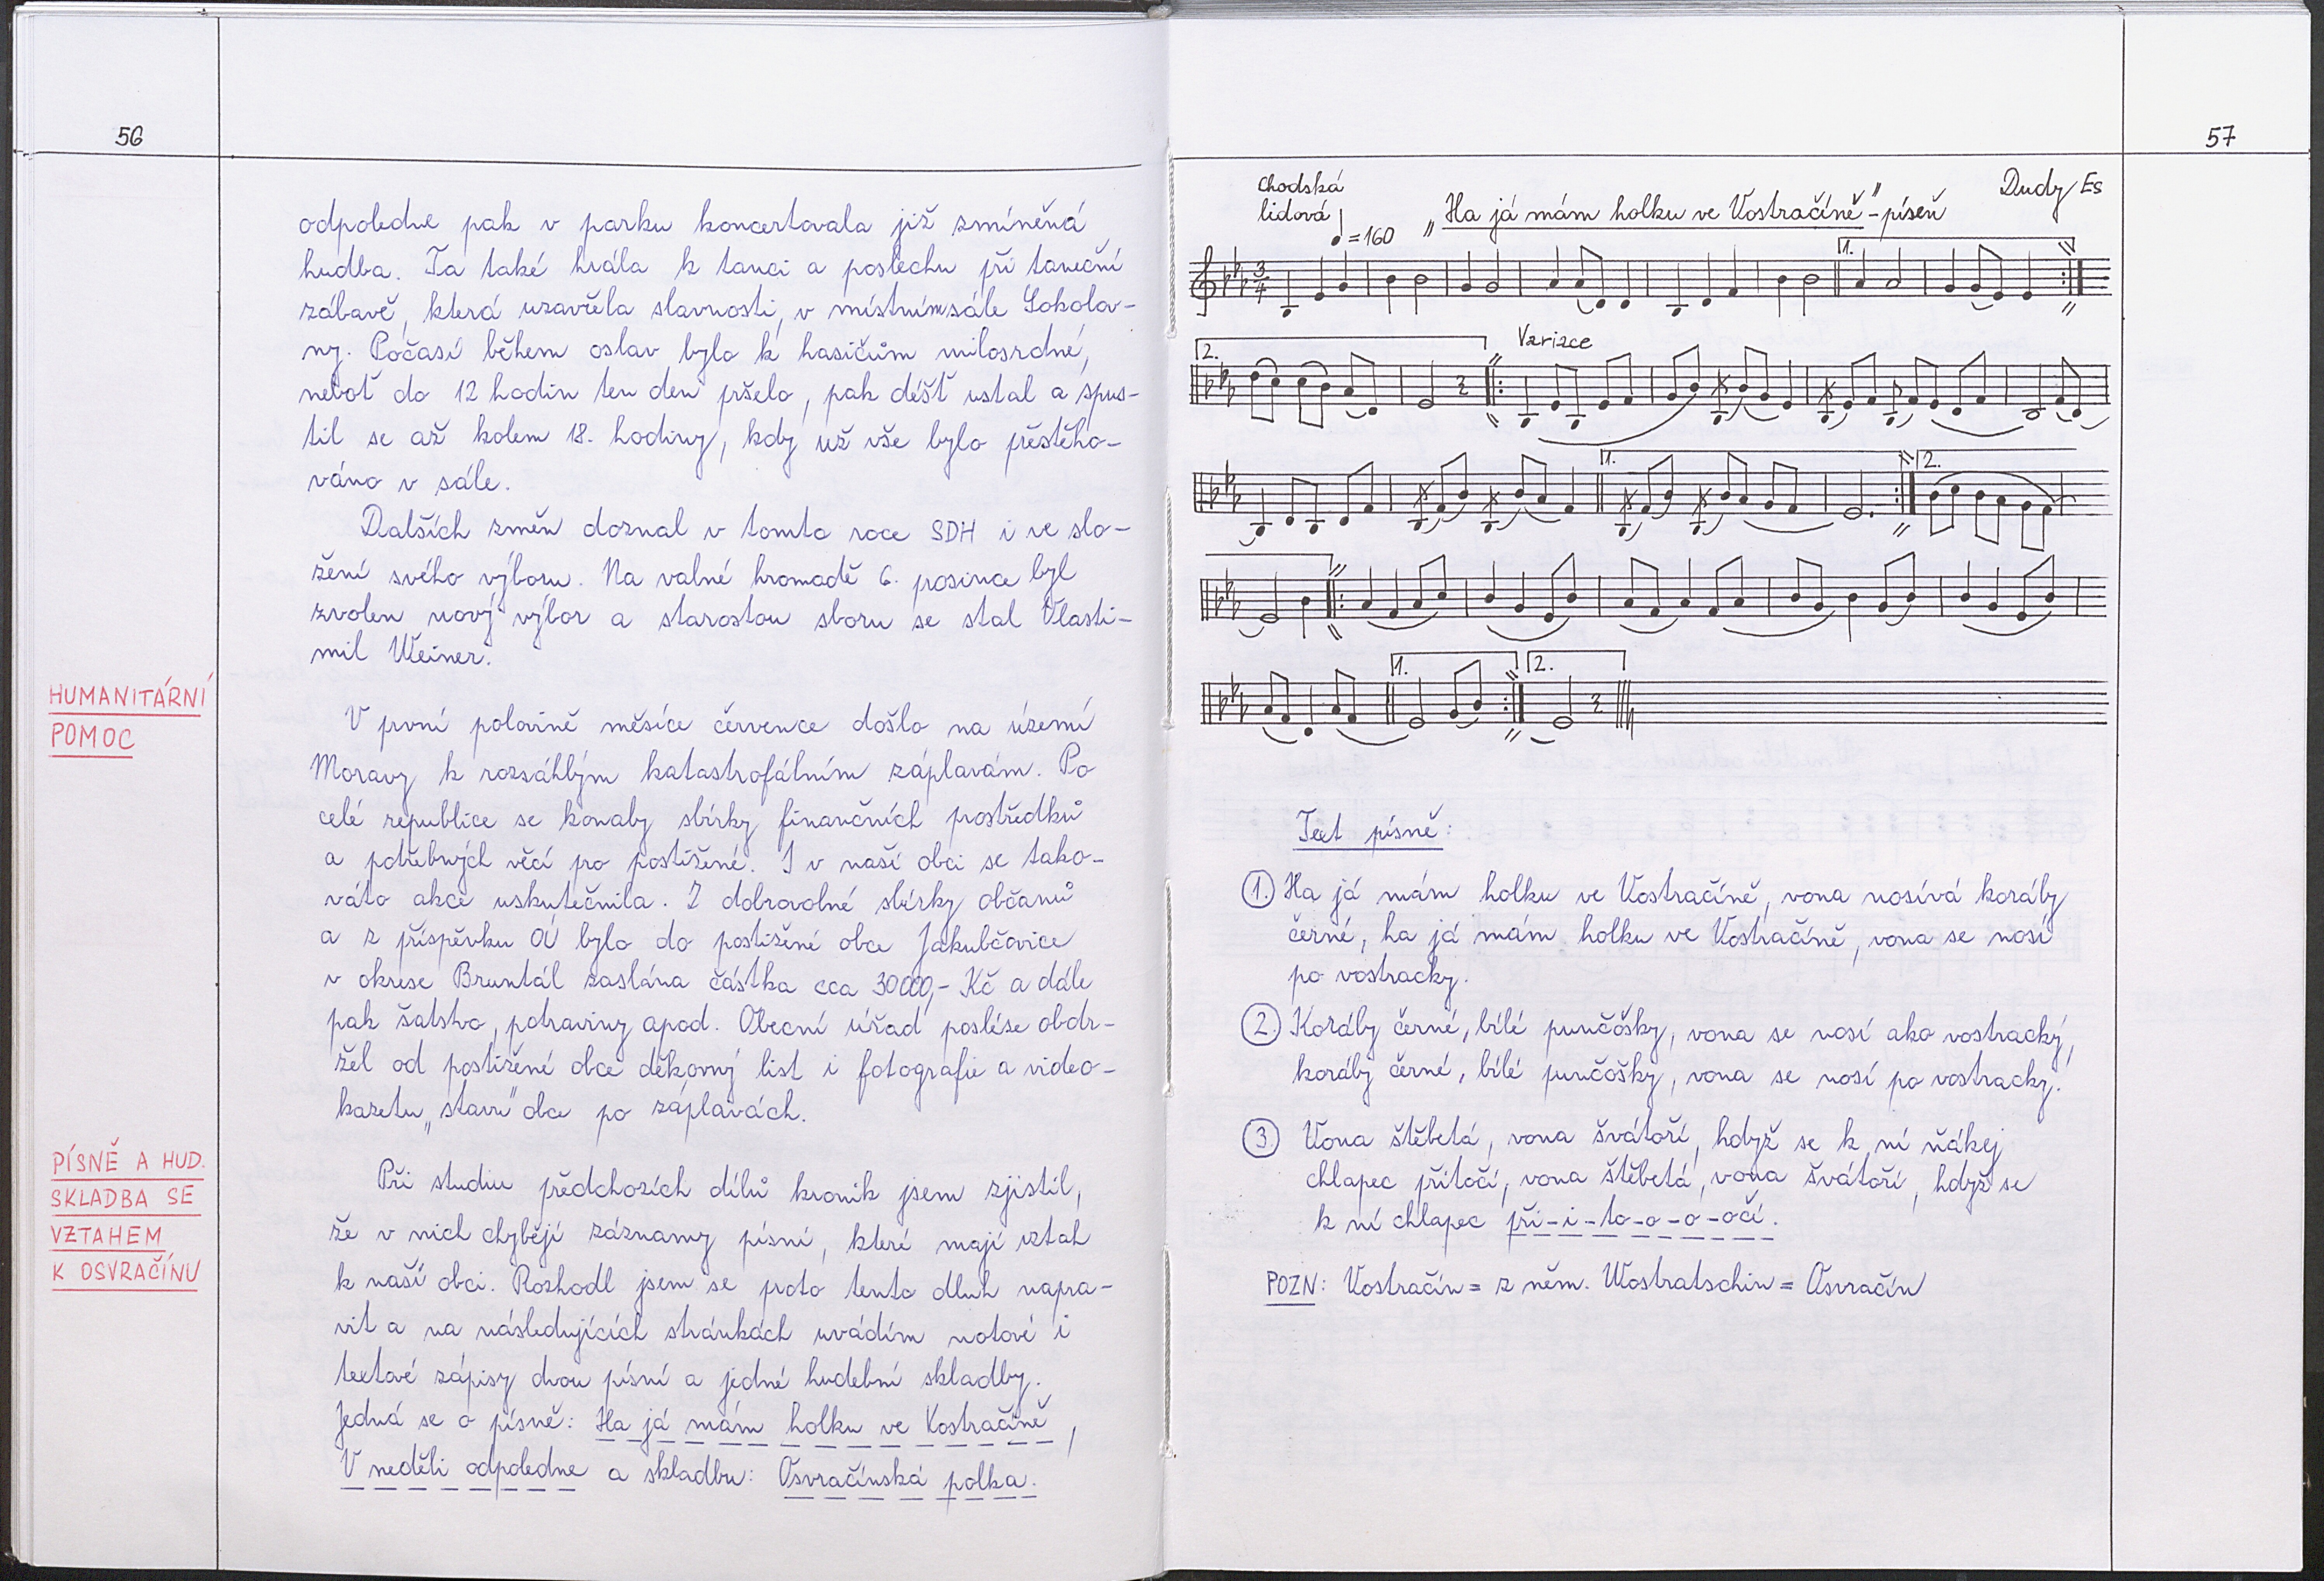 56
odpoledne pak v parku koncertovala již zmíněná
hudba. Ta také hrála k tanci a poslechu při taneční
zábavě, která uzavřela slavnosti, v místním sále Sokolov-
ny. Počasí během oslav bylo k hasičům milosrdné,
neboť do 12 hodin ten den pršelo, pak déšť ustal a spus-
til se až kolem 18. hodiny, kdy už vše bylo přestěho-
váno v sále.
Dalších změn doznal v tomto roce SDH i ve slo-
žení svého výboru. Na valné hromadě 6. prosince byl
zvolen nový výbor a starostou sboru se stal Vlasti-
mil Weiner.
HUMANITÁRNÍ
POMOC
V první polovině měsíce července došlo na území
Moravy k rozsáhlým katastrofálním záplavám. Po
celé republice se konaly sbírky finančních prostředků
a potřebných věcí pro postižené. I v naší obci se tako-
váto akce uskutečnila. Z dobrovolné sbírky občanů
a z příspěvku OÚ bylo do postižené obce Jakubčovice
v okrese Bruntál zaslána částka cca 30000,- Kč a dále
pak šatstvo, potraviny apod. Obecní úřad posléze obdr-
žel od postižené obce děkovný list i fotografie a video-
kazetu „stavu" obce po záplavách.
PÍSNĚ A HUD.
SKLADBA SE
VZTAHEM
K OSVRAČÍNU
Při studiu předchozích dílů kronik jsem zjistil,
že v nich chybějí záznamy písní, které mají vztah
k naší obci. Rozhodl jsem se proto tento dluh napra-
vit a na následujících stránkách uvádím notové i
textové zápisy dvou písní a jedné hudební skladby.
Jedná se o písně: Ha já mám holku ve Vostračíně,
V neděli odpoledne a skladbu: Osvračínská polka.
57
Chodská
lidová
♩=160
„Ha já mám holku ve Vostračíně"-píseň
Dudy Es
1.
2.
Variace
1.
2.
1.
2.
Text písně:
1. Ha já mám holku ve Vostračíně, vona nosívá koráby
černé, ha já mám holku ve Vostračíně, vona se nosí
po vostracky.
2. Koráby černé, bílé punčóšky, vona se nosí ako vostracký,
koráby černé, bílé punčóšky, vona se nosí po vostracky.
3. Vona štěbetá, vona švátoří, hdyž se k ní ňákej
chlapec přitočí, vona štěbetá, vona švátoří, hdyž se
k ní chlapec při-i-to-o-o-očí.
POZN: Vostračín = z něm. Wostratschin = Osvračín